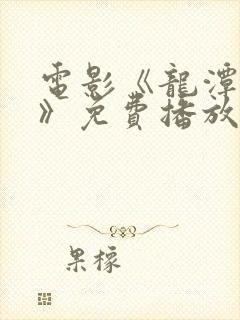 電影《龍潭
》免費播放
果檬